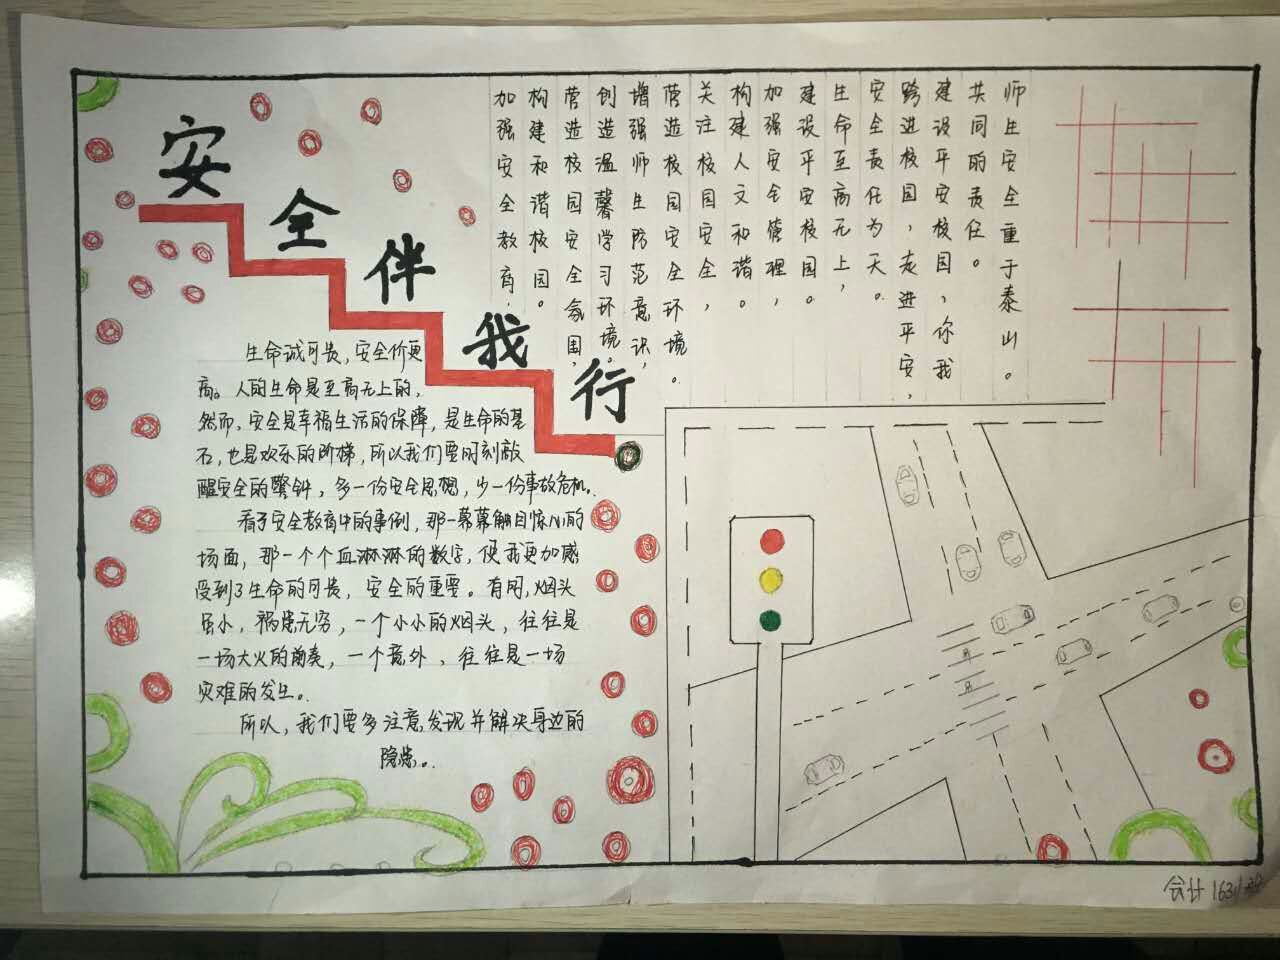 安全伴我行
加强安全教育，
构建和谐校园。
营造校园安全氛围，
创造温馨学习环境。
增强师生防范意识，
营造校园安全环境。
关注校园安全，
构建人文和谐。
加强安全管理，
建设平安校园。
生命至高无上，
安全责任为天。
跨进校园，走进平安，
建设平安校园，你我
共同的责任。
师生安全重于泰山。
生命诚可贵，安全价更
高。人的生命是至高无上的，
然而，安全是幸福生活的保障，是生命的基
石，也是欢乐的阶梯，所以我们要时刻敲
醒安全的警钟，多一份安全思想，少一份事故危机。
看了安全教育中的事例，那一幕幕触目惊心的
场面，那一个个血淋淋的数字，使我更加感
受到了生命的可贵，安全的重要。有网，烟头
虽小，祸患无穷，一个小小的烟头，往往是
一场大火的前奏，一个意外，往往是一场
灾难的发生。
所以，我们要多注意，发现并解决身边的
隐患。
会计